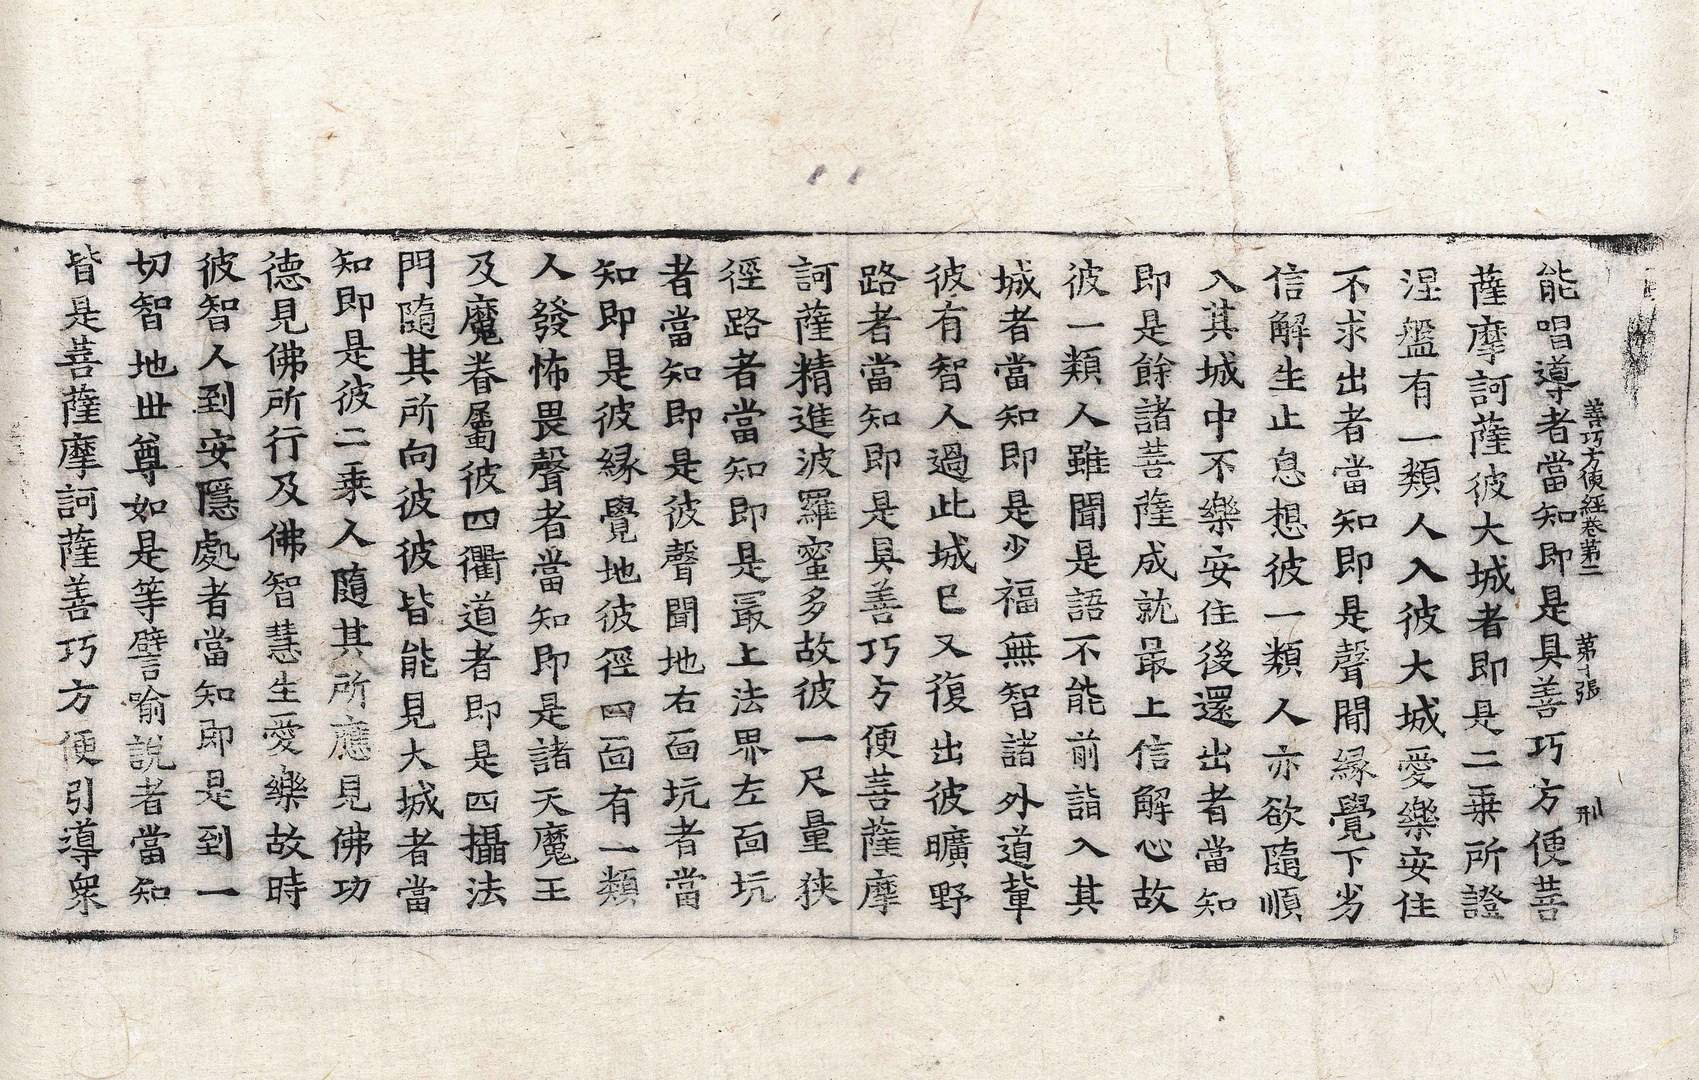 善巧方便經卷第二 第十張 刑
能唱導者當知即是具善巧方便菩
薩摩訶薩彼大城者即是二乗所證
涅盤有一類人入彼大城愛樂安住
不求出者當知即是聲聞緣覺下劣
信解生止息想彼一類人亦欲隨順
入其城中不樂安住後還出者當知
即是餘諸菩薩成就最上信解心故
彼一類人雖聞是語不能前詣入其
城者當知即是少福無智諸外道輩
彼有智人過此城已又復出彼曠野
路者當知即是具善巧方便菩薩摩
訶薩精進波羅蜜多故彼一尺量狹
徑路者當知即是最上法界左面坑
者當知即是彼聲聞地右面坑者當
知即是彼緣覺地彼徑四面有一類
人發怖畏聲者當知即是諸天魔王
及魔眷屬彼四衢道者即是四攝法
門隨其所向彼彼皆能見大城者當
知即是彼二乗人隨其所應見佛功
德見佛所行及佛智慧生愛樂故時
彼智人到安隱處者當知即是到一
切智地世尊如是等譬喻說者當知
皆是菩薩摩訶薩善巧方便引導衆